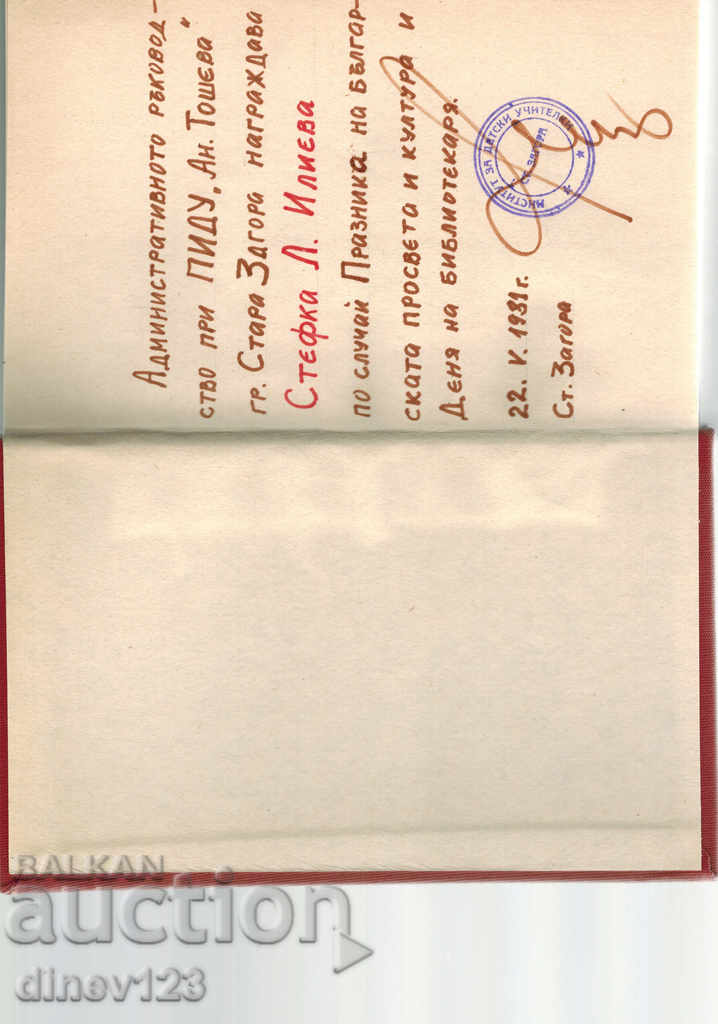 Административното ръковод-
ство при ПИДУ „Ан. Тошева"
гр. Стара Загора награждава
Стефка Л. Илиева
по случай Празника на българ-
ската просвета и култура и
Деня на библиотекаря.
22. V. 1981 г.
Ст. Загора
ИНСТИТУТ ЗА ДЕТСКИ УЧИТЕЛКИ
СТ. ЗАГОРА
BALKAN
auction
dinev123